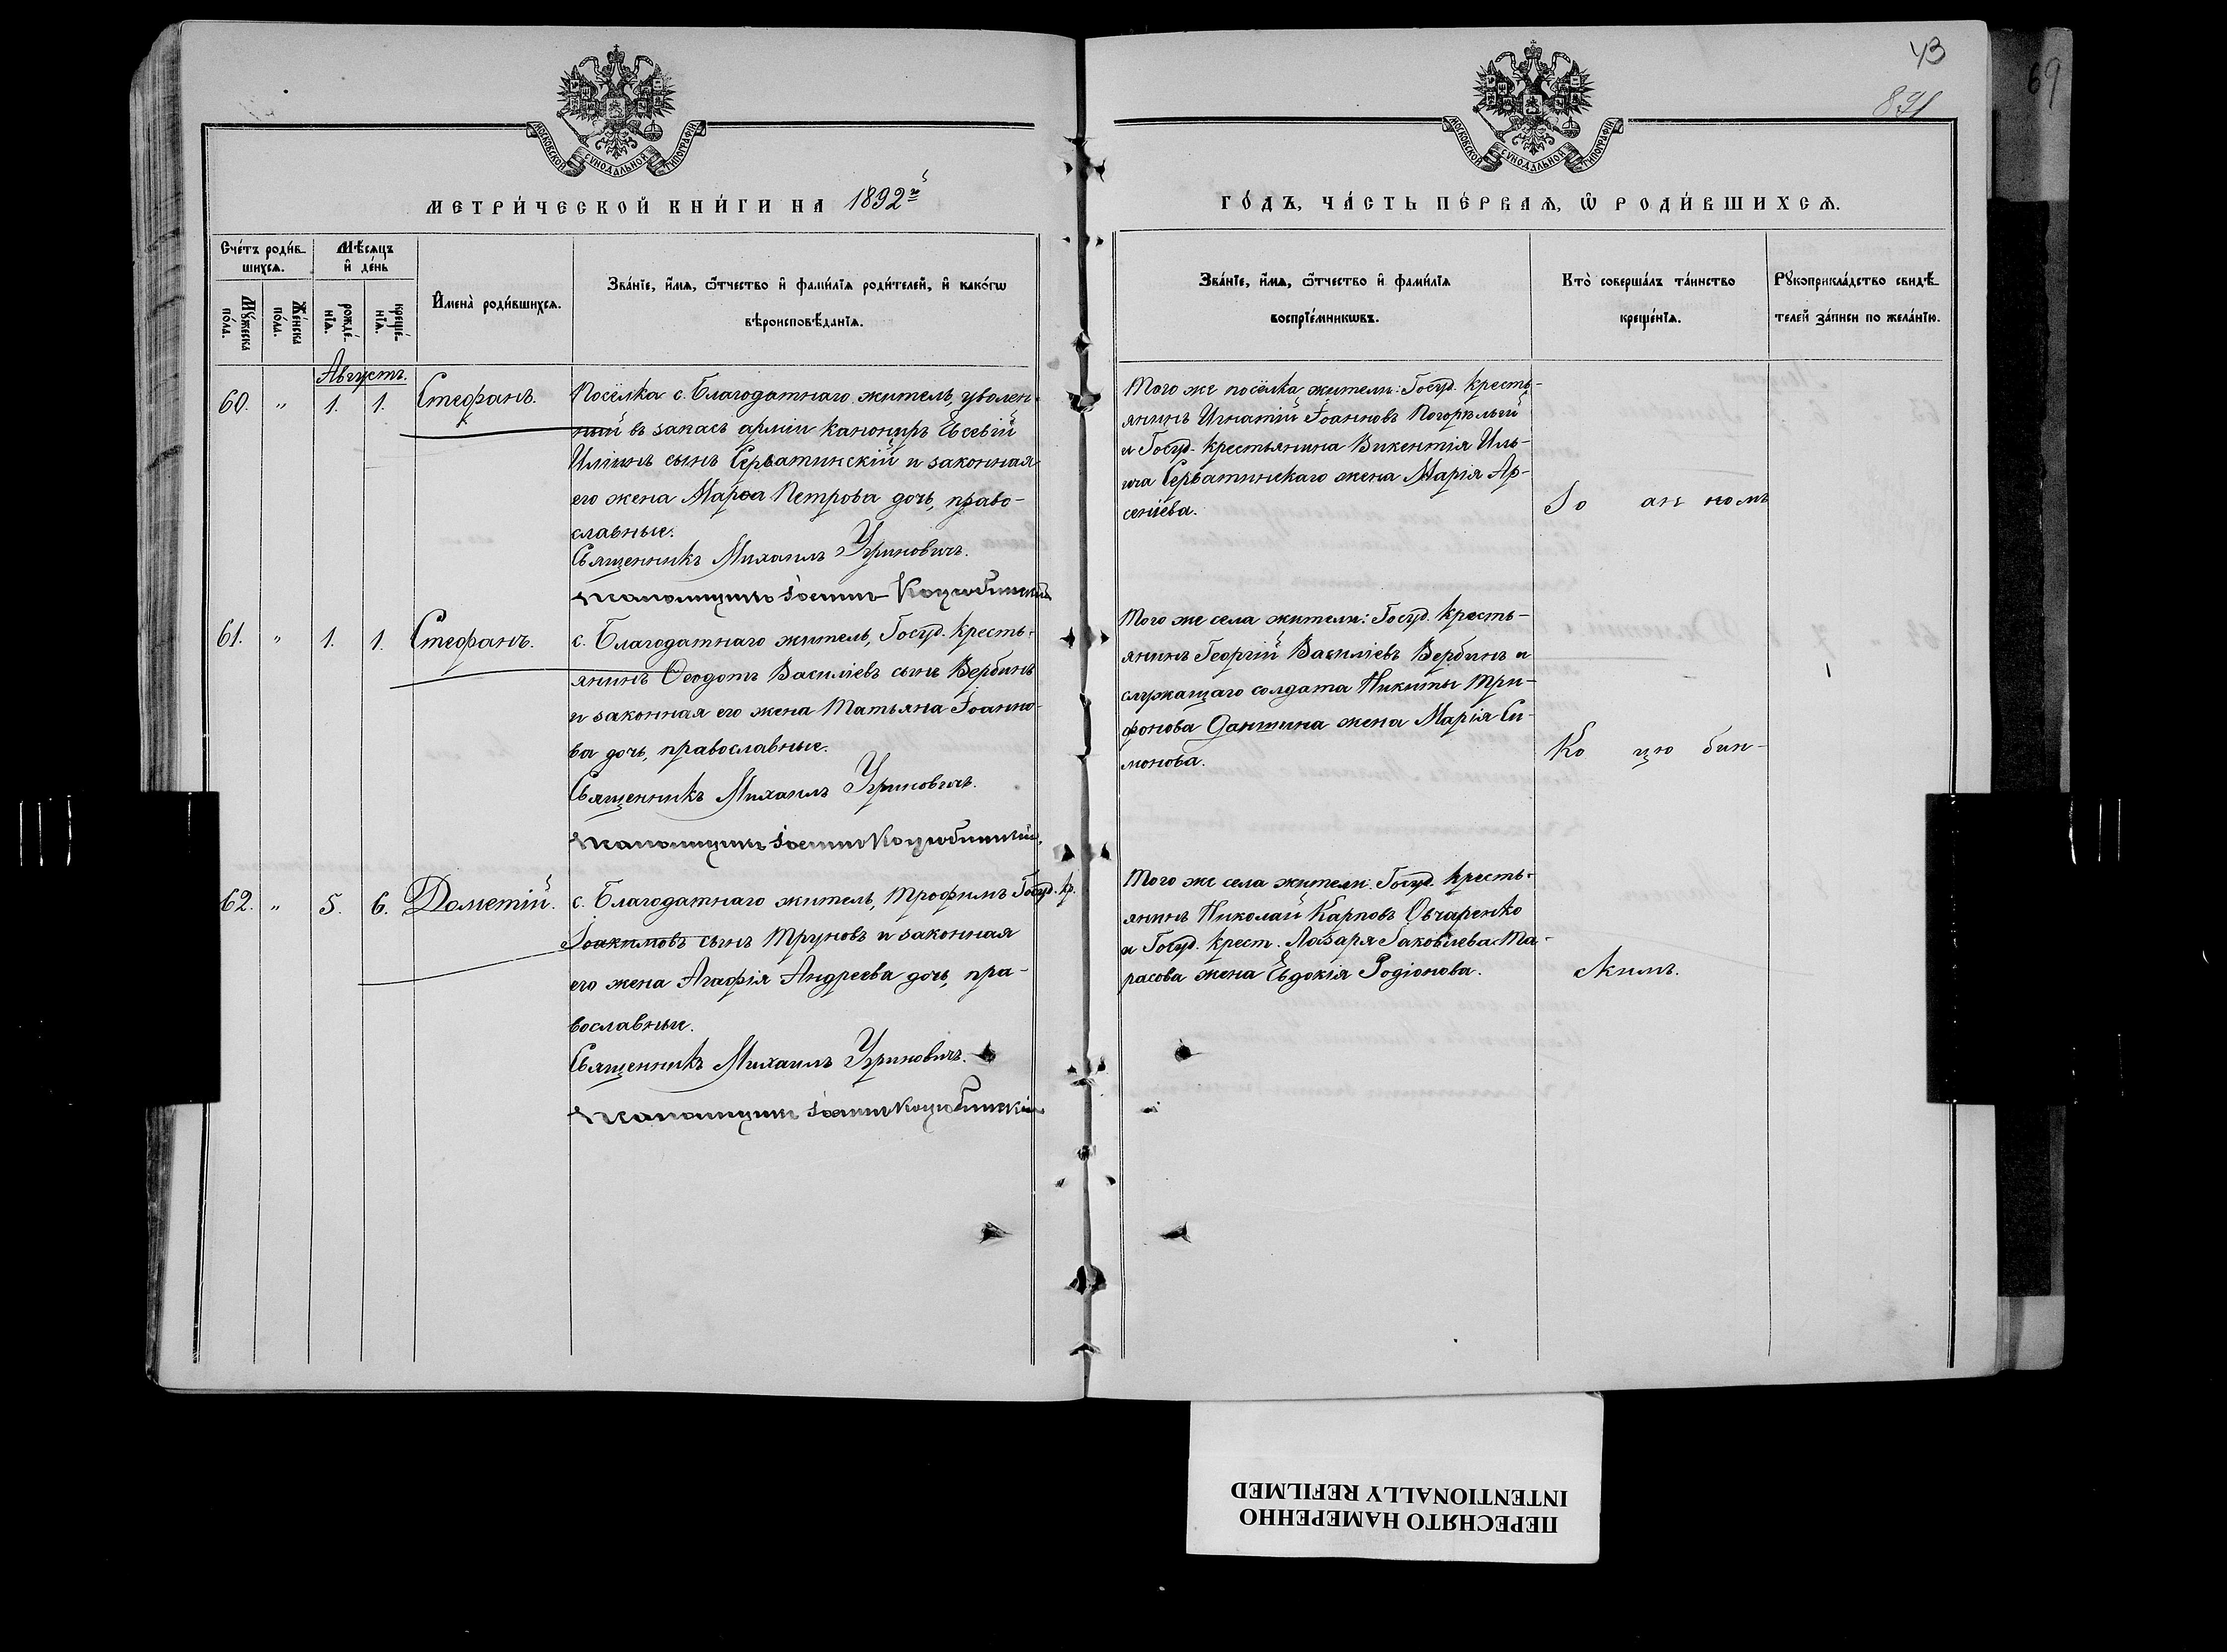 43
69
891
МОСКОВСКОЙ СУНОДАЛЬНОЙ ТИПОГРАФІИ
МОСКОВСКОЙ СУНОДАЛЬНОЙ ТИПОГРАФІИ
МЕТРИ́ЧЕСКОЙ КНИ́ГИ НА 1892й
ГО́ДЪ, ЧА́СТЬ ПЕ́РВАѦ, Ѡ РОДИ́ВШИХСѦ.
Сче́тъ роди́в-
шихсѧ.
Мѣ́сѧцъ
и҆ де́нь
Мꙋ́жеска
по́ла.
Же́нска
по́ла.
рожде́-
нїѧ.
креще́-
нїѧ.
И҆мена̀ роди́вшихсѧ.
Зва́нїе, и҆́мѧ, ѻ҆́тчество и҆ фами́лїѧ роди́телей, и҆ како́гѡ
вѣроисповѣ́данїѧ.
Зва́нїе, и҆́мѧ, ѻ҆́тчество и҆ фами́лїѧ
воспрїе́мникѡвъ.
Кто̀ соверша́лъ та́инство
креще́нїѧ.
Рꙋкоприкла́дство свидѣ́-
телей за́писи по жела́нїю.
Августъ.
60. " 1. 1. Стефанъ.
Посёлка с. Благодатнаго житель, уволен-
ный въ запасъ арміи канониръ Евсевій
Иліинъ сынъ Серватинскій и законная
его жена Марѳа Петрова дочь, право-
славные.
Священникъ Михаилъ Угриновичъ.
Псаломщикъ Іоаннъ Коцюбинскій
Того же посёлка жители: Госуд. кресть-
янинъ Игнатій Іоанновъ Погорѣлый
и Госуд. крестьянина Викентія Иль-
ича Серватинскаго жена Марія Ар-
сеніева.
Іо ан номъ
61. " 1. 1. Стефанъ.
с. Благодатнаго житель, Госуд. кресть-
янинъ Ѳеодотъ Василіевъ сынъ Вербинъ
и законная его жена Татьяна Іоанно-
ва дочь, православные.
Священникъ Михаилъ Угриновичъ.
Псаломщикъ Іоаннъ Коцюбинскій.
Того же села жители: Госуд. кресть-
янинъ Георгій Василіевъ Вербинъ и
служащаго солдата Никиты Три-
фонова жена Марія Си-
монова.
Ко цю бин-
62. " 5. 6. Дометій.
с. Благодатнаго житель, Трофимъ Госуд. кр.
Іоакимовъ сынъ Труновъ и законная
его жена Агафія Андреева дочь, пра-
вославные.
Священникъ Михаилъ Угриновичъ.
Псаломщикъ Іоаннъ Коцюбинскій
Того же села жители: Госуд. кресть-
янинъ Николай Карповъ Овчаренко
и Госуд. крест. Лазаря Іаковлева Та-
расова жена Евдокія Родіонова.
скимъ.
ПЕРЕСНЯТО НАМЕРЕННО
INTENTIONALLY REFILMED